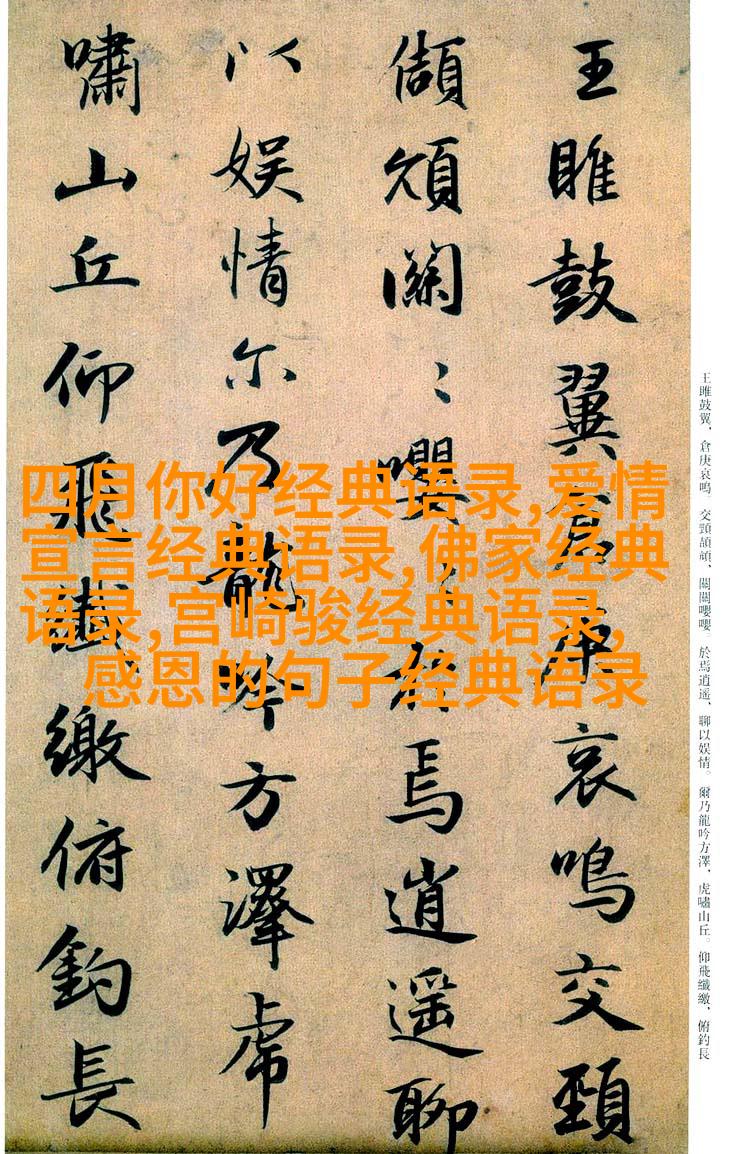 王雎鼓翼倉庚哀鳴交頸
頡頏關〻嚶〻於焉逍遥聊
以娱情尓乃龍吟方澤虎
嘯山丘仰飛纖繳俯釣長
王雎鼓翼、倉庚哀鳴。交頸頡頏、關關嚶嚶。於焉逍遥、聊以娱情。爾乃龍吟方澤、虎嘯山丘。仰飛纖繳、俯釣長
四月你好经典语录,爱情
宣言经典语录,佛家经典
语录,宫崎骏经典语录,
感恩的句子经典语录